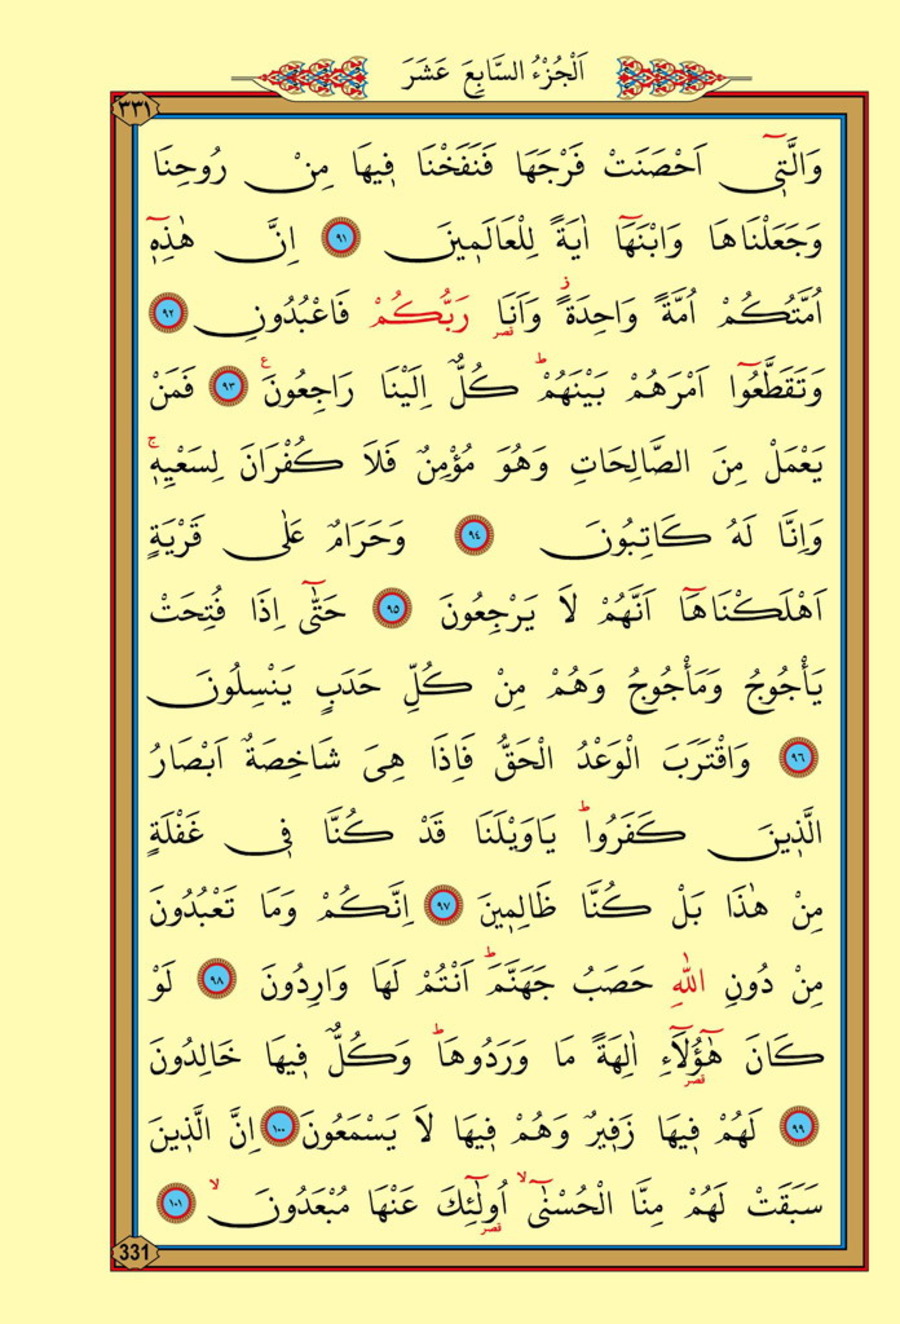 اَلْجُزْءُ السَّابِعَ عَشَرَ
٣٣١
وَالَّت۪ٓي اَحْصَنَتْ فَرْجَهَا فَنَفَخْنَا ف۪يهَا مِنْ رُوحِنَا
وَجَعَلْنَاهَا وَابْنَهَٓا اٰيَةً لِلْعَالَم۪ينَ ﴿٩١﴾ اِنَّ هٰذِه۪ٓ
اُمَّتُكُمْ اُمَّةً وَاحِدَةًۘ وَاَنَا۬ رَبُّكُمْ فَاعْبُدُونِ ﴿٩٢﴾
وَتَقَطَّعُٓوا اَمْرَهُمْ بَيْنَهُمْۜ كُلٌّ اِلَيْنَا رَاجِعُونَ۟ ﴿٩٣﴾ فَمَنْ
يَعْمَلْ مِنَ الصَّالِحَاتِ وَهُوَ مُؤْمِنٌ فَلَا كُفْرَانَ لِسَعْيِه۪ۚ
وَاِنَّا لَهُ كَاتِبُونَ ﴿٩٤﴾ وَحَرَامٌ عَلٰى قَرْيَةٍ
اَهْلَكْنَاهَٓا اَنَّهُمْ لَا يَرْجِعُونَ ﴿٩٥﴾ حَتّٰٓى اِذَا فُتِحَتْ
يَأْجُوجُ وَمَأْجُوجُ وَهُمْ مِنْ كُلِّ حَدَبٍ يَنْسِلُونَ
﴿٩٦﴾ وَاقْتَرَبَ الْوَعْدُ الْحَقُّ فَاِذَا هِيَ شَاخِصَةٌ اَبْصَارُ
الَّذ۪ينَ كَفَرُواۜ يَاوَيْلَنَا قَدْ كُنَّا ف۪ي غَفْلَةٍ
مِنْ هٰذَا بَلْ كُنَّا ظَالِم۪ينَ ﴿٩٧﴾ اِنَّكُمْ وَمَا تَعْبُدُونَ
مِنْ دُونِ اللّٰهِ حَصَبُ جَهَنَّمَۜ اَنْتُمْ لَهَا وَارِدُونَ ﴿٩٨﴾ لَوْ
كَانَ هٰٓؤُ۬لَٓاءِ اٰلِهَةً مَا وَرَدُوهَاۜ وَكُلٌّ ف۪يهَا خَالِدُونَ
﴿٩٩﴾ لَهُمْ ف۪يهَا زَف۪يرٌ وَهُمْ ف۪يهَا لَا يَسْمَعُونَ ﴿١٠٠﴾ اِنَّ الَّذ۪ينَ
سَبَقَتْ لَهُمْ مِنَّا الْحُسْنٰٓىۙ اُو۬لٰٓئِكَ عَنْهَا مُبْعَدُونَۙ ﴿١٠١﴾
331